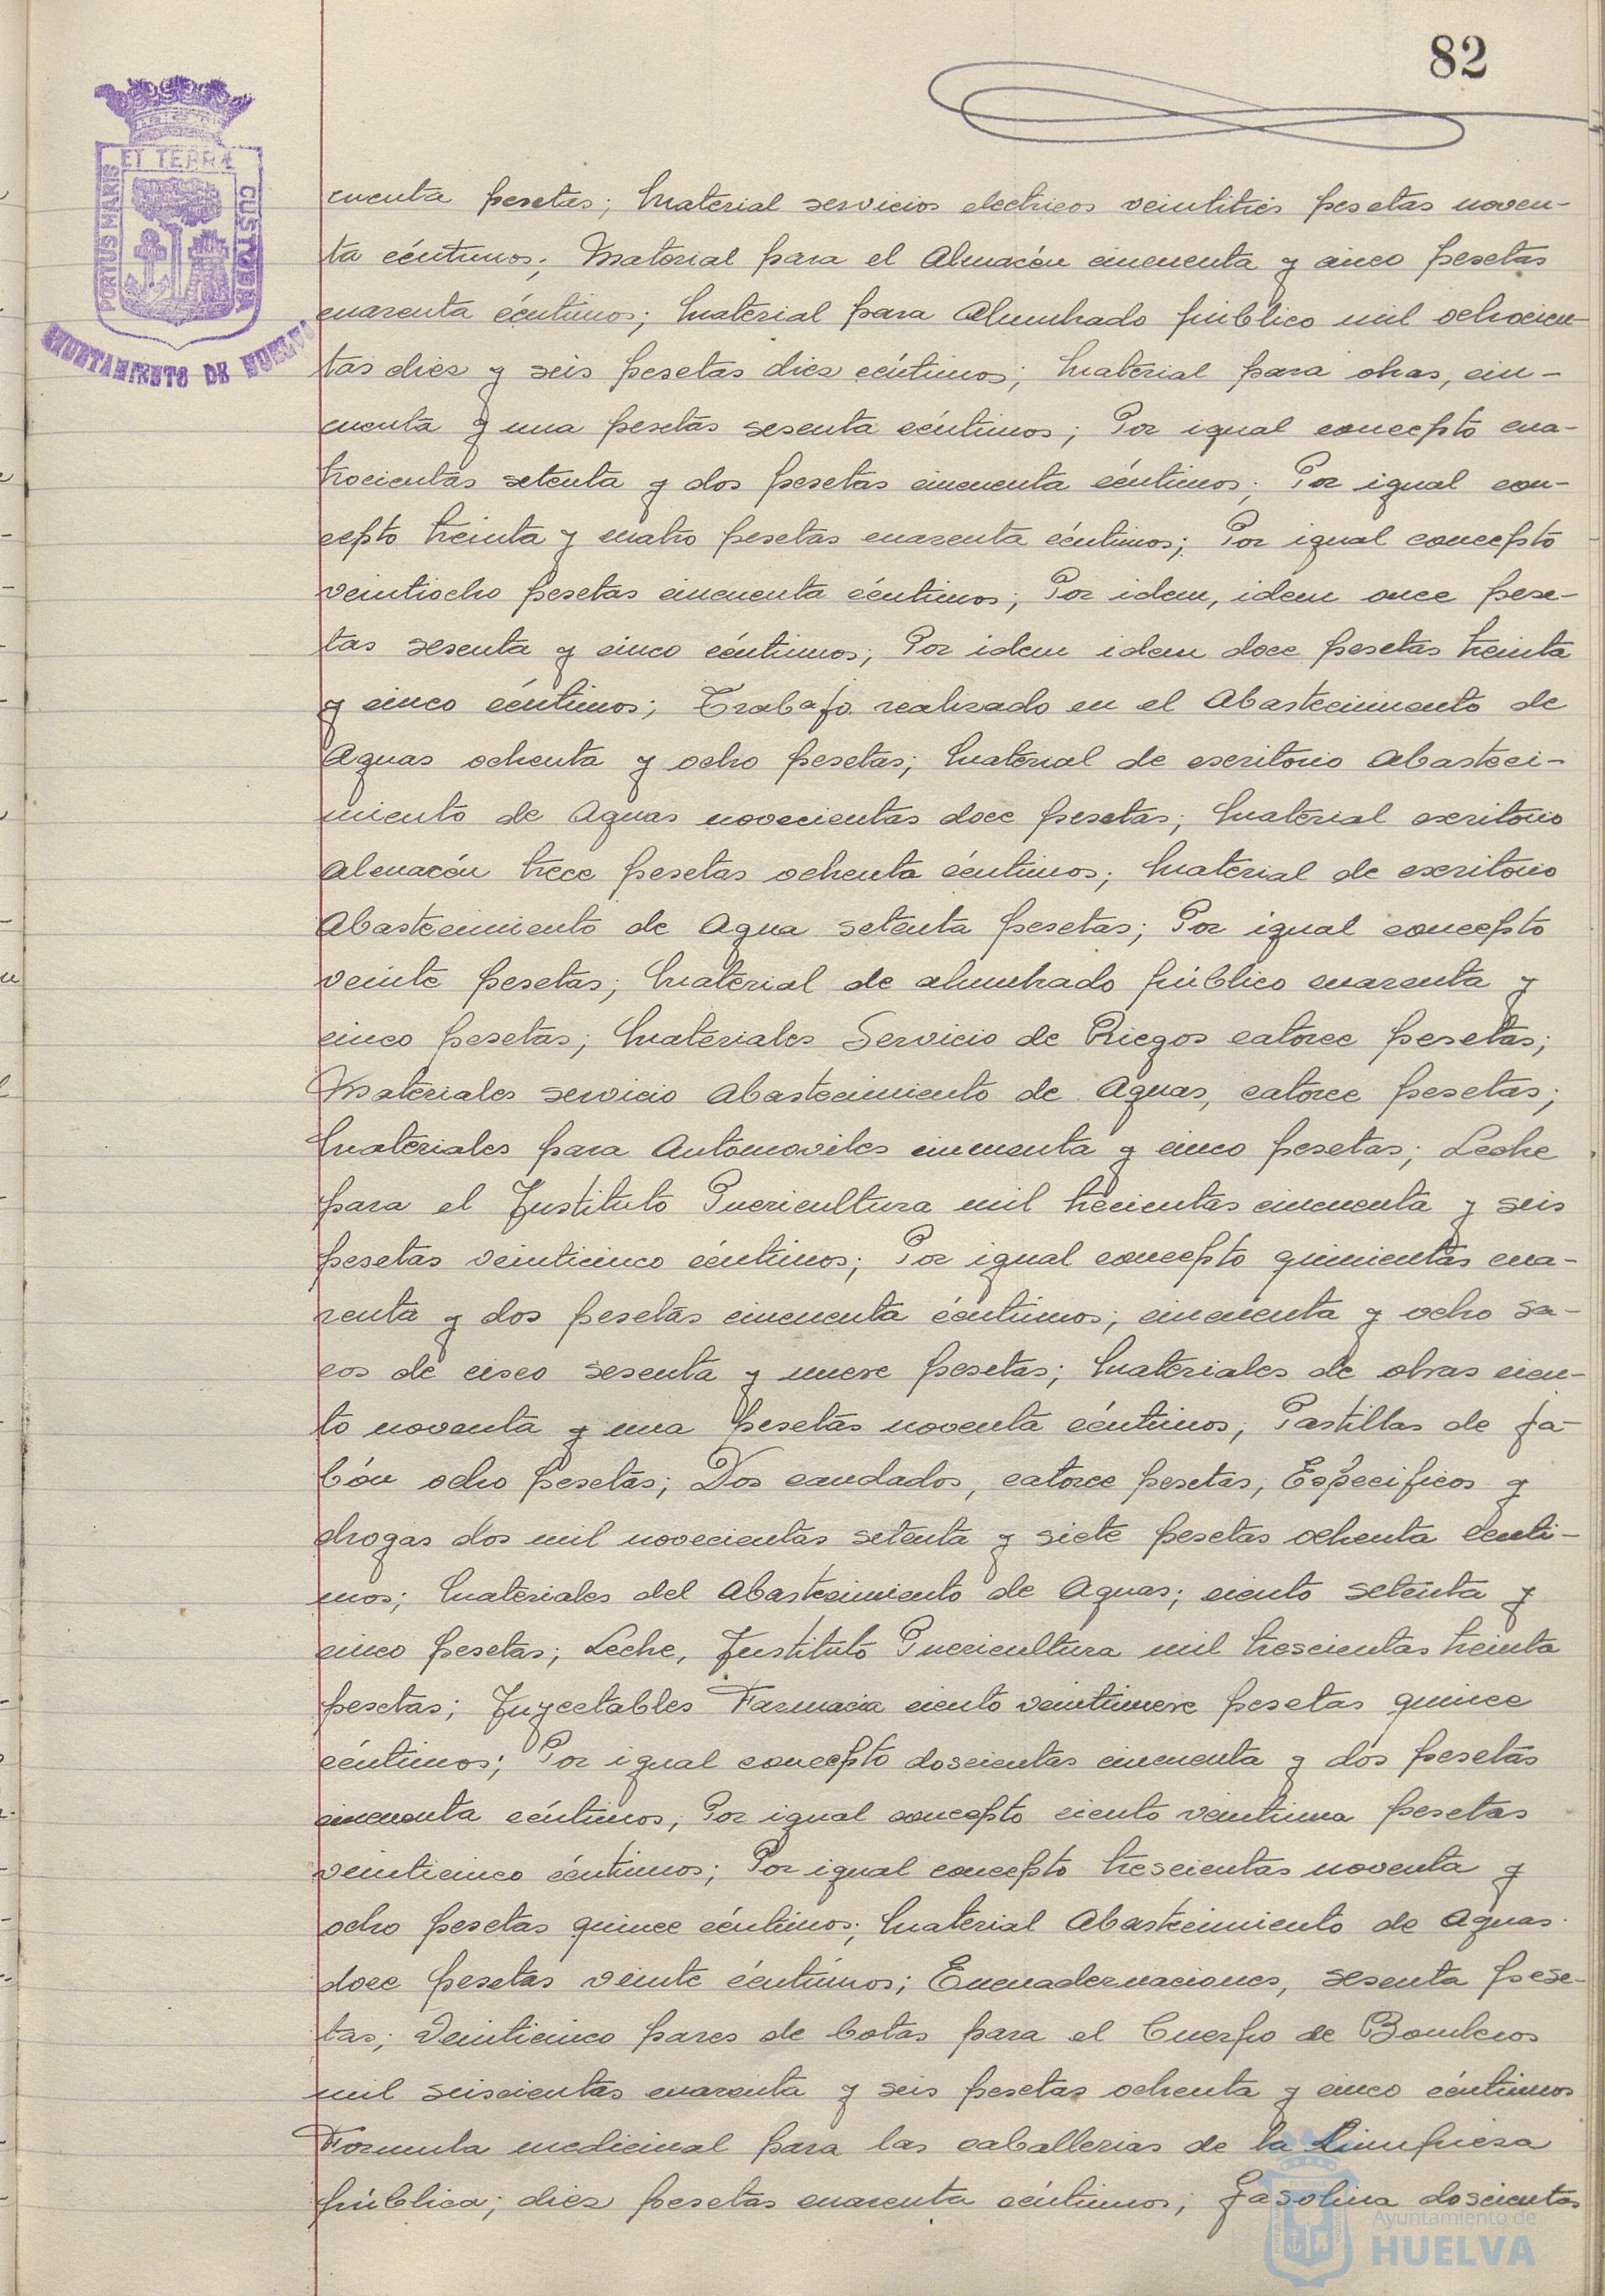 82
ET TERRÆ
PORTUS MARIS
CUSTODIA
AYUNTAMIENTO DE HUELVA
cuenta pesetas; Material servicios electricos veintitrés pesetas noven-
ta céntimos; Material para el Almacén cincuenta y cinco pesetas
cuarenta céntimos; Material para Alumbrado público mil ochocien-
tas diez y seis pesetas diez céntimos; Material para obras, cin-
cuenta y una pesetas sesenta céntimos; Por igual concepto cua-
trocientas setenta y dos pesetas cincuenta céntimos; Por igual con-
cepto treinta y cuatro pesetas cuarenta céntimos; Por igual concepto
veintiocho pesetas cincuenta céntimos; Por idem, idem once pese-
tas sesenta y cinco céntimos; Por idem idem doce pesetas treinta
y cinco céntimos; Trabajo realizado en el Abastecimiento de
Aguas ochenta y ocho pesetas; Material de escritorio Abasteci-
miento de Aguas novecientas doce pesetas; Material escritorio
Almacén trece pesetas ochenta céntimos; Material de escritorio
Abastecimiento de Agua setenta pesetas; Por igual concepto
veinte pesetas; Material de alumbrado público cuarenta y
cinco pesetas; Materiales Servicio de Riegos catorce pesetas;
Materiales servicio Abastecimiento de Aguas, catorce pesetas;
Materiales para Automoviles cincuenta y cinco pesetas; Leche
para el Instituto Puericultura mil trecientas cincuenta y seis
pesetas veinticinco céntimos; Por igual concepto quinientas cua-
renta y dos pesetas cincuenta céntimos; cincuenta y ocho sa-
cos de cisco sesenta y nueve pesetas; Materiales de obras cien-
to noventa y una pesetas noventa céntimos; Pastillas de ja-
bón ocho pesetas; Dos candados, catorce pesetas, Especificos y
drogas dos mil novecientas setenta y siete pesetas ochenta centi-
mos; Materiales del Abastecimiento de Aguas; ciento setenta y
cinco pesetas; Leche, Instituto Puericultura mil trescientas treinta
pesetas; Inyectables Farmacia ciento veintinueve pesetas quince
céntimos; Por igual concepto doscientas cincuenta y dos pesetas
cincuenta céntimos, Por igual concepto ciento veintiuna pesetas
veinticinco céntimos; Por igual concepto trescientas noventa y
ocho pesetas quince céntimos; Material Abastecimiento de Aguas
doce pesetas veinte céntimos; Encuadernaciones, sesenta pese-
tas; Veinticinco pares de botas para el Cuerpo de Bomberos
mil seiscientas cuarenta y seis pesetas ochenta y cinco céntimos
Formula medicinal para las caballerias de la Limpieza
pública; diez pesetas cuarenta céntimos; Gasolina doscientas
Ayuntamiento de
HUELVA